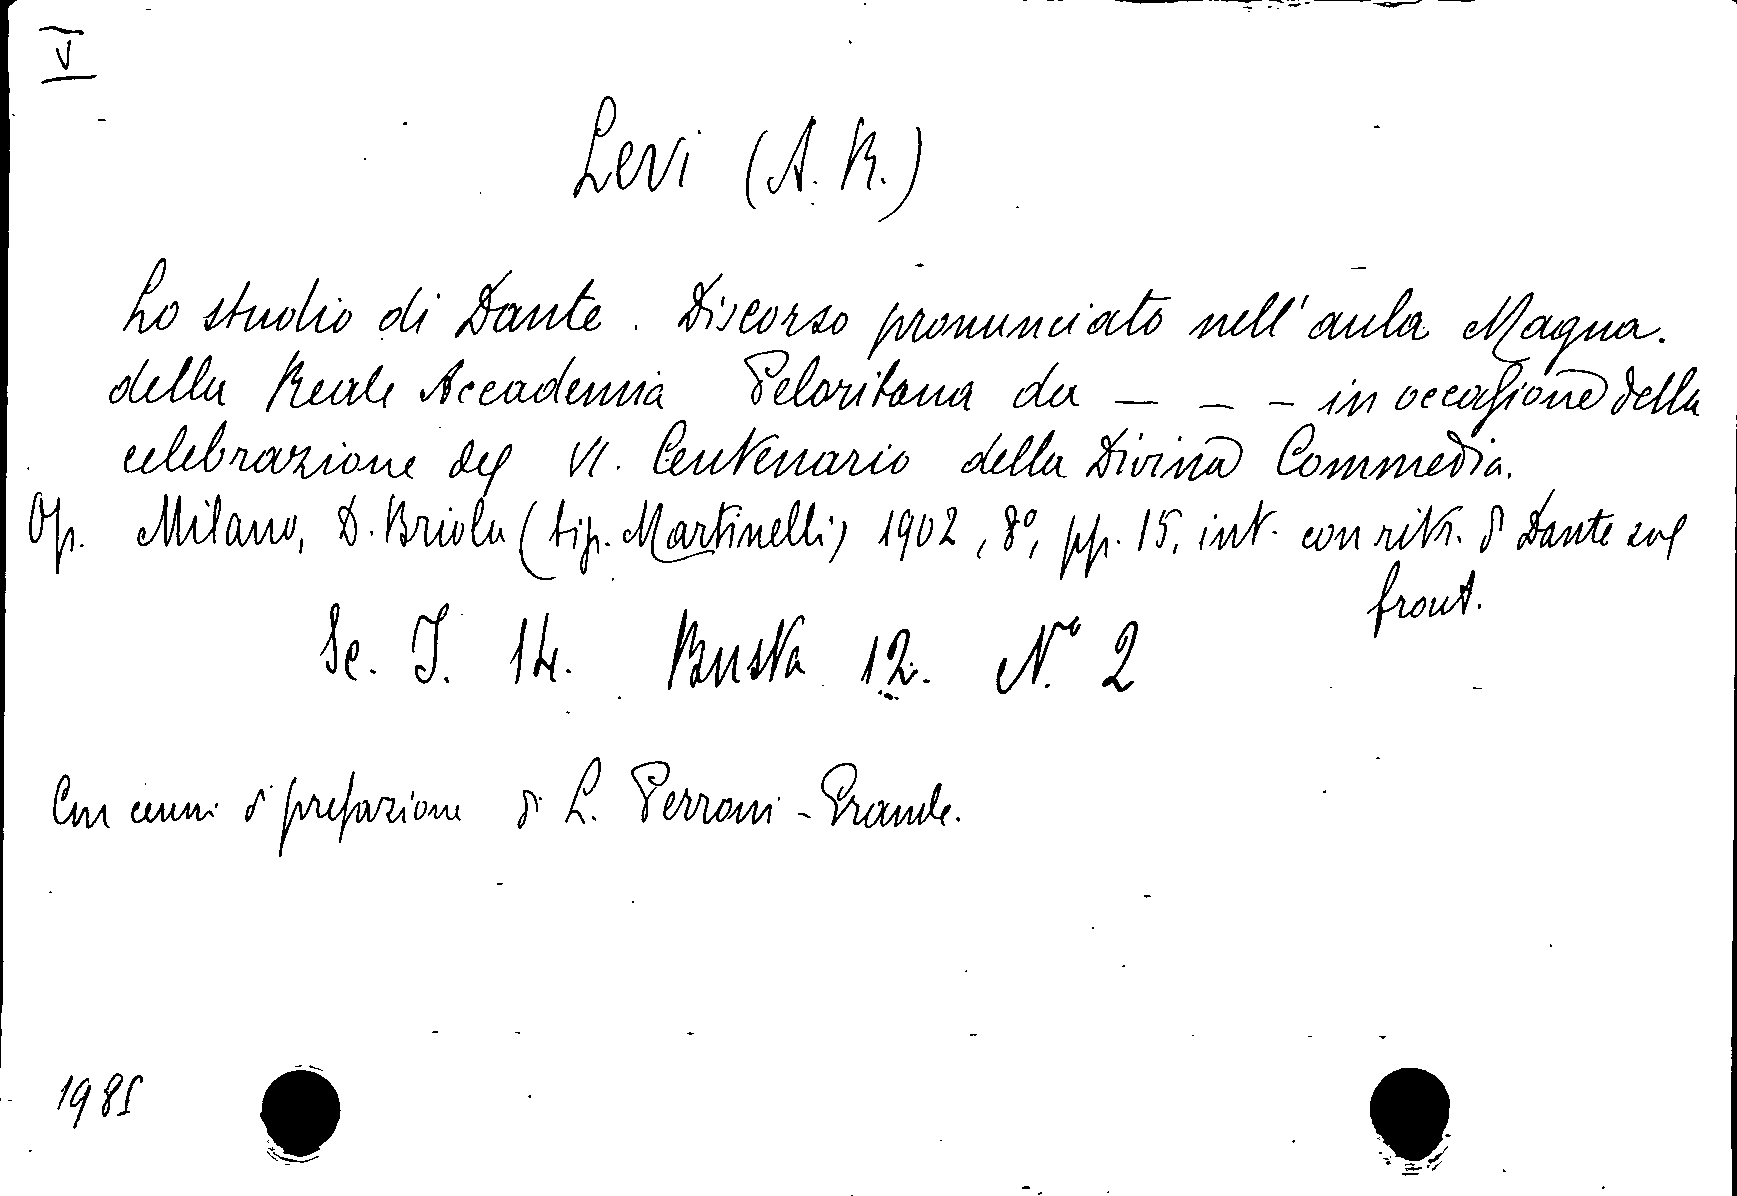 V
Levi (A. R.)
Lo studio di Dante. Discorso pronunciato nell'aula Magna.
della Reale Accademia Peloritana da — — — in occasione della
celebrazione del VI. Centenario della Divina Commedia.
Op. Milano, D. Briola (tip. Martinelli) 1902, 8°, pp. 15, int. con ritr. di Dante sul
front.
Sc. I. 14. Busta 12. N.° 2
Con cenni di prefazione di L. Perroni-Grande.
1985